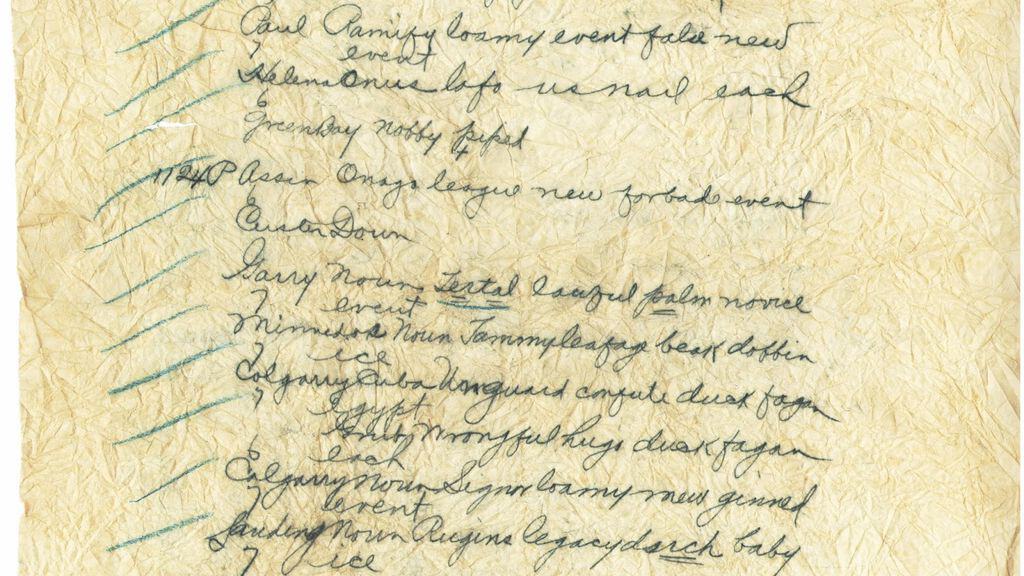 Paul Ramify loamy event false new
7 event
Helena Onus lofo us nail each
6
Green Bay nobby piped
1124P Assin Onago league new forbade event
6
Custer Down
Garry Noun Tertal lawful palm novice
7 event
Minnedos Noun Jammyleafage beak dobbin
7 ice
Calgarry Cuba Unguard confute duck fagan
7 Egypt
Wrongful hugo duck fagan
6 each
Calgarry Noun Signor loamy new ginned
7 event
Landing Noun Rugins legacy duarch baby
7 ice